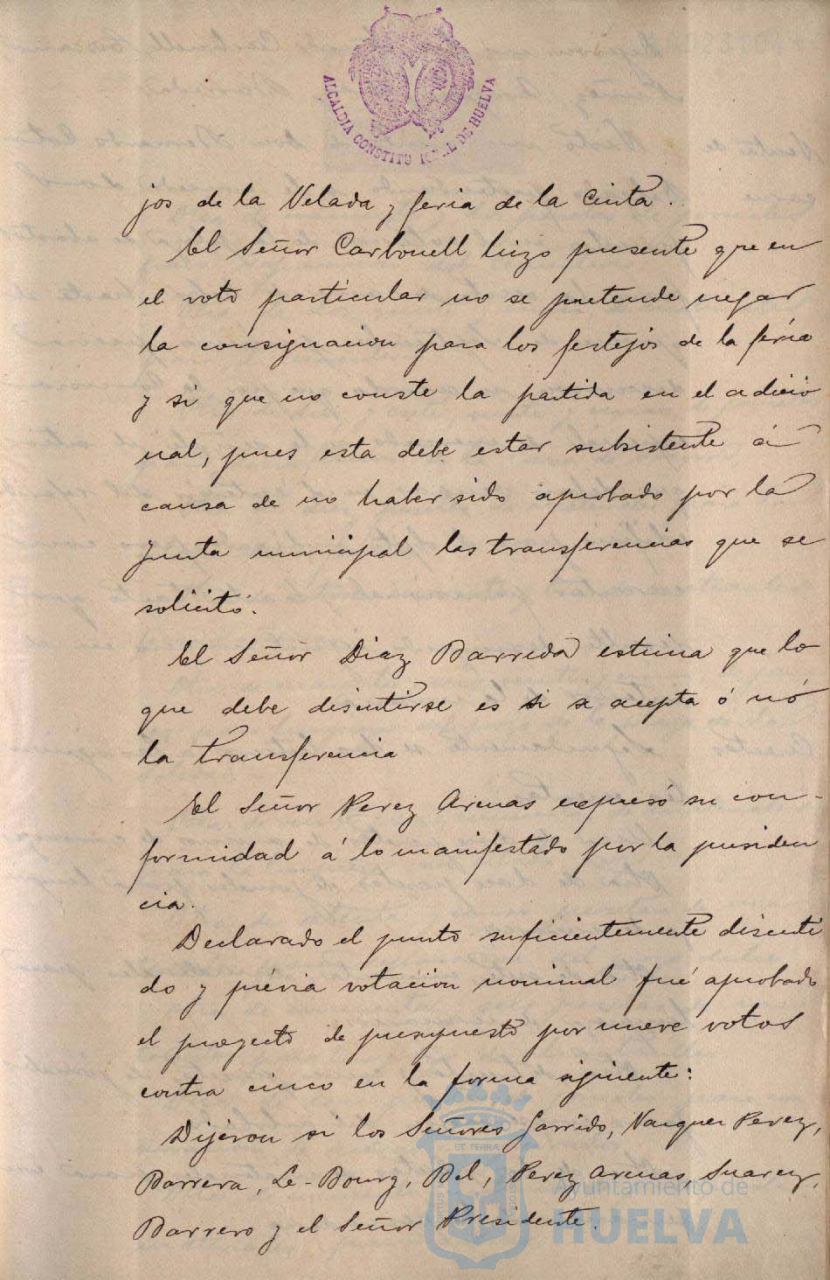 ALCALDIA CONSTITU L DE HUELVA
jos de la Velada y feria de la Cinta.
El Señor Carbonell hizo presente que en
el voto particular no se pretende negar
la consignacion para los festejos de la feria
y si que no conste la partida en el adicio
nal, pues esta debe estar subsistente á
causa de no haber sido aprobado por la
Junta municipal las transferencias que se
solicitó.
El Señor Diaz Barreda estima que lo
que debe discutirse es si se acepta ó nó
la transferencia
El Señor Perez Arenas expresó su con-
formidad á lo manifestado por la presiden
cia.
Declarado el punto suficientemente discuti
do y prévia votacion nominal fué aprobado
el proyecto de presupuesto por nueve votos
contra cinco en la forma siguiente:
Dijéron si los Señores Garrido, Vazquez Perez,
Barrera, Le-Bourg, Bel, Perez Arenas, Suarez,
Barrero y el Señor Presidente.
Ayuntamiento de
HUELVA